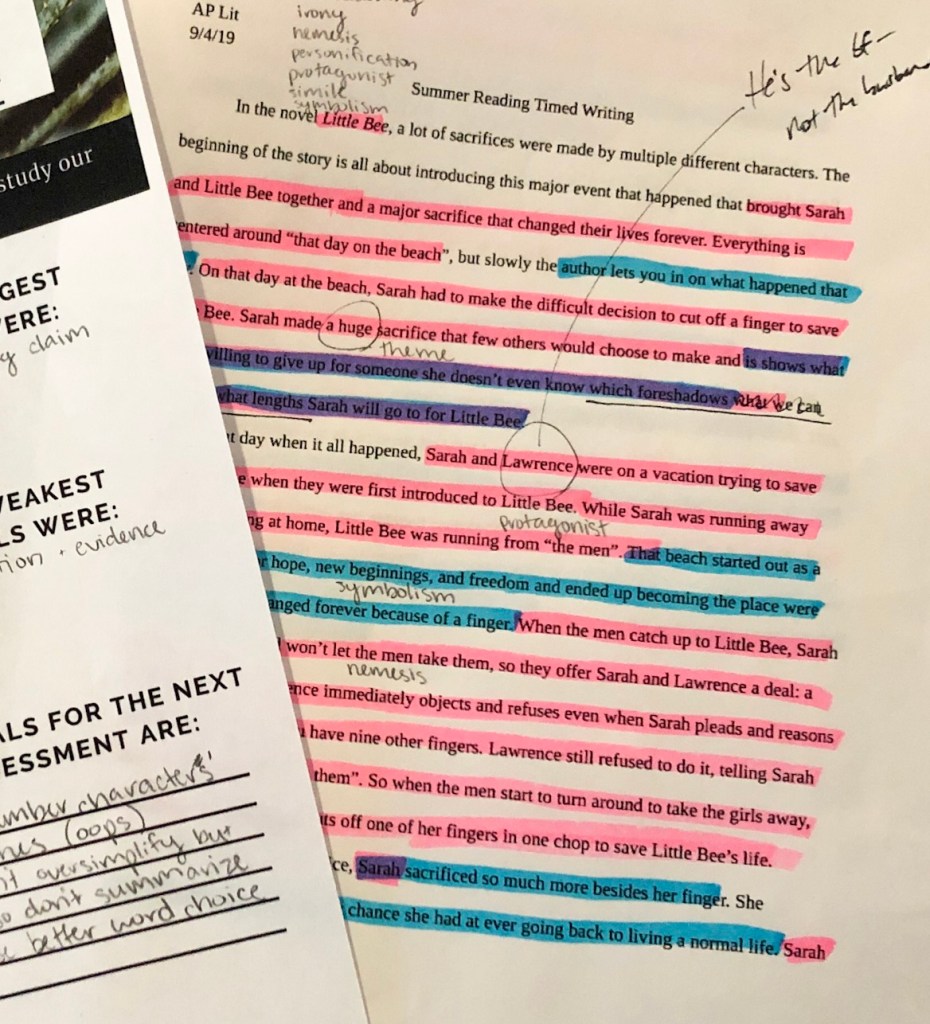 AP Lit
9/4/19
irony
nemesis
personification
protagonist
simile
symbolism
He's the bf—
not the husband
Summer Reading Timed Writing
In the novel Little Bee, a lot of sacrifices were made by multiple different characters. The
beginning of the story is all about introducing this major event that happened that brought Sarah
and Little Bee together and a major sacrifice that changed their lives forever. Everything is
entered around “that day on the beach”, but slowly the author lets you in on what happened that
. On that day at the beach, Sarah had to make the difficult decision to cut off a finger to save
Bee. Sarah made a huge sacrifice that few others would choose to make and is shows what
theme
willing to give up for someone she doesn’t even know which foreshadows what we can
what lengths Sarah will go to for Little Bee.
t day when it all happened, Sarah and Lawrence were on a vacation trying to save
e when they were first introduced to Little Bee. While Sarah was running away
protagonist
ng at home, Little Bee was running from “the men”. That beach started out as a
r hope, new beginnings, and freedom and ended up becoming the place were
symbolism
anged forever because of a finger. When the men catch up to Little Bee, Sarah
won’t let the men take them, so they offer Sarah and Lawrence a deal: a
nemesis
ence immediately objects and refuses even when Sarah pleads and reasons
have nine other fingers. Lawrence still refused to do it, telling Sarah
them”. So when the men start to turn around to take the girls away,
ts off one of her fingers in one chop to save Little Bee’s life.
ce, Sarah sacrificed so much more besides her finger. She
chance she had at ever going back to living a normal life. Sarah
study our
GEST
ERE:
y claim
WEAKEST
LS WERE:
tion + evidence
ALS FOR THE NEXT
ESSMENT ARE:
umber characters'
mes (oops)
n't oversimplify but
so don't summarize
better word choice